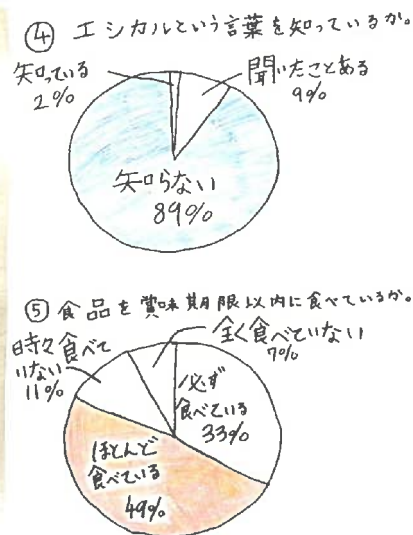 ④ エシカルという言葉を知っているか。
知っている
2%
聞いたことある
9%
知らない
89%
⑤ 食品を賞味期限以内に食べているか。
時々食べて
いない
11%
全く食べていない
7%
必ず
食べている
33%
ほとんど
食べている
49%